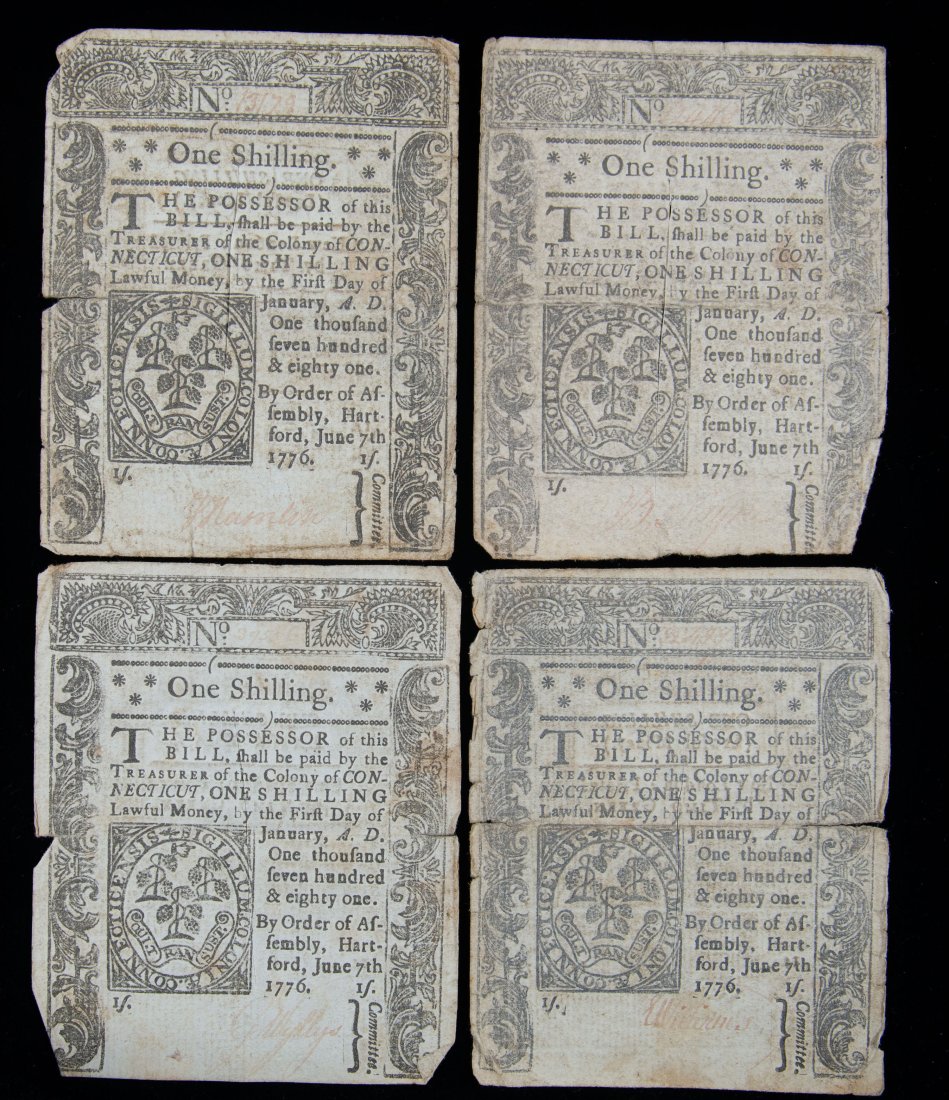 No. 13173
One Shilling.
THE POSSESSOR of this
BILL, ſhall be paid by the
TREASURER of the Colony of CON-
NECTICUT, ONE SHILLING
Lawful Money, by the Firſt Day of
January, A. D.
One thouſand
ſeven hundred
& eighty one.
By Order of Aſ-
ſembly, Hart-
ford, June 7th
1776. 1ſ.
SIGILLUM. COLONIÆ. CONNECTICENSIS
QUI TRAN SUST.
1ſ.
Committee.
No
One Shilling.
THE POSSESSOR of this
BILL, ſhall be paid by the
TREASURER of the Colony of CON-
NECTICUT, ONE SHILLING
Lawful Money, by the Firſt Day of
January, A. D.
One thouſand
ſeven hundred
& eighty one.
By Order of Aſ-
ſembly, Hart-
ford, June 7th
1776. 1ſ.
SIGILLUM. COLONIÆ. CONNECTICENSIS
QUI TRAN SUST.
1ſ.
Committee.
No
One Shilling.
THE POSSESSOR of this
BILL, ſhall be paid by the
TREASURER of the Colony of CON-
NECTICUT, ONE SHILLING
Lawful Money, by the Firſt Day of
January, A. D.
One thouſand
ſeven hundred
& eighty one.
By Order of Aſ-
ſembly, Hart-
ford, June 7th
1776. 1ſ.
SIGILLUM. COLONIÆ. CONNECTICENSIS
QUI TRAN SUST.
1ſ.
Committee.
No
One Shilling.
THE POSSESSOR of this
BILL, ſhall be paid by the
TREASURER of the Colony of CON-
NECTICUT, ONE SHILLING
Lawful Money, by the Firſt Day of
January, A. D.
One thouſand
ſeven hundred
& eighty one.
By Order of Aſ-
ſembly, Hart-
ford, June 7th
1776. 1ſ.
SIGILLUM. COLONIÆ. CONNECTICENSIS
QUI TRAN SUST.
1ſ.
Williams
Committee.